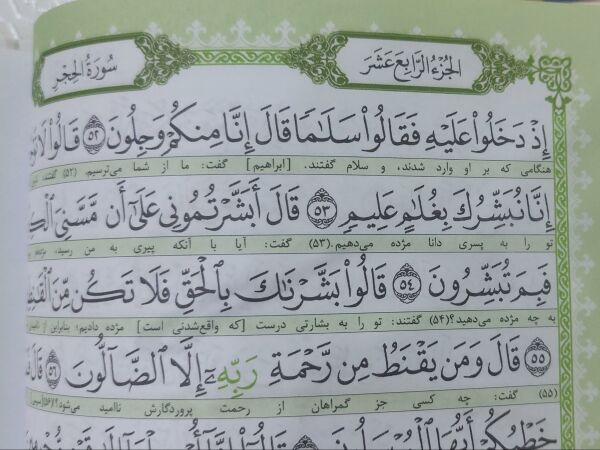 الجُزءُ الرَّابِعَ عَشَرَ
سُورَةُ الحِجْرِ
إِذْ دَخَلُواْ عَلَيْهِ فَقَالُواْ سَلَـٰمًا قَالَ إِنَّا مِنكُمْ وَجِلُونَ ۝۵۲ قَالُواْ لَا
هنگامی که بر او وارد شدند، و سلام گفتند. [ابراهیم] گفت: ما از شما می‌ترسیم. (۵۲) گفتند:
إِنَّا نُبَشِّرُكَ بِغُلَـٰمٍ عَلِيمٍ ۝۵۳ قَالَ أَبَشَّرْتُمُونِي عَلَىٰٓ أَن مَّسَّنِيَ
تو را به پسری دانا مژده می‌دهیم. (۵۳) گفت: آیا با آنکه پیری به من رسیده،
فَبِمَ تُبَشِّرُونَ ۝۵۴ قَالُواْ بَشَّرْنَـٰكَ بِٱلْحَقِّ فَلَا تَكُن مِّنَ
به چه مژده می‌دهید؟ (۵۴) گفتند: تو را به بشارتی درست [که واقع‌شدنی است] مژده دادیم؛ بنابراین از
۝۵۵ قَالَ وَمَن يَقْنَطُ مِن رَّحْمَةِ رَبِّهِۦٓ إِلَّا ٱلضَّآلُّونَ ۝۵۶ قَالَ
(۵۵) گفت: چه کسی جز گمراهان از رحمت پروردگارش ناامید می‌شود؟ (۵۶)
خَطْبُكُمْ أَيُّهَا ٱلْمُرْسَلُونَ